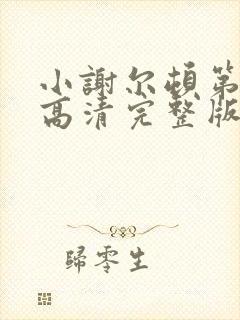 小謝尔頓第
高清完整版
歸零生